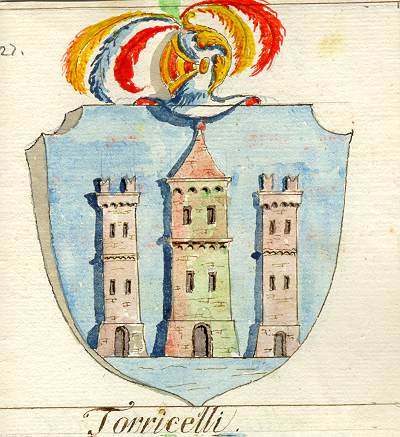 27.
Torricelli.